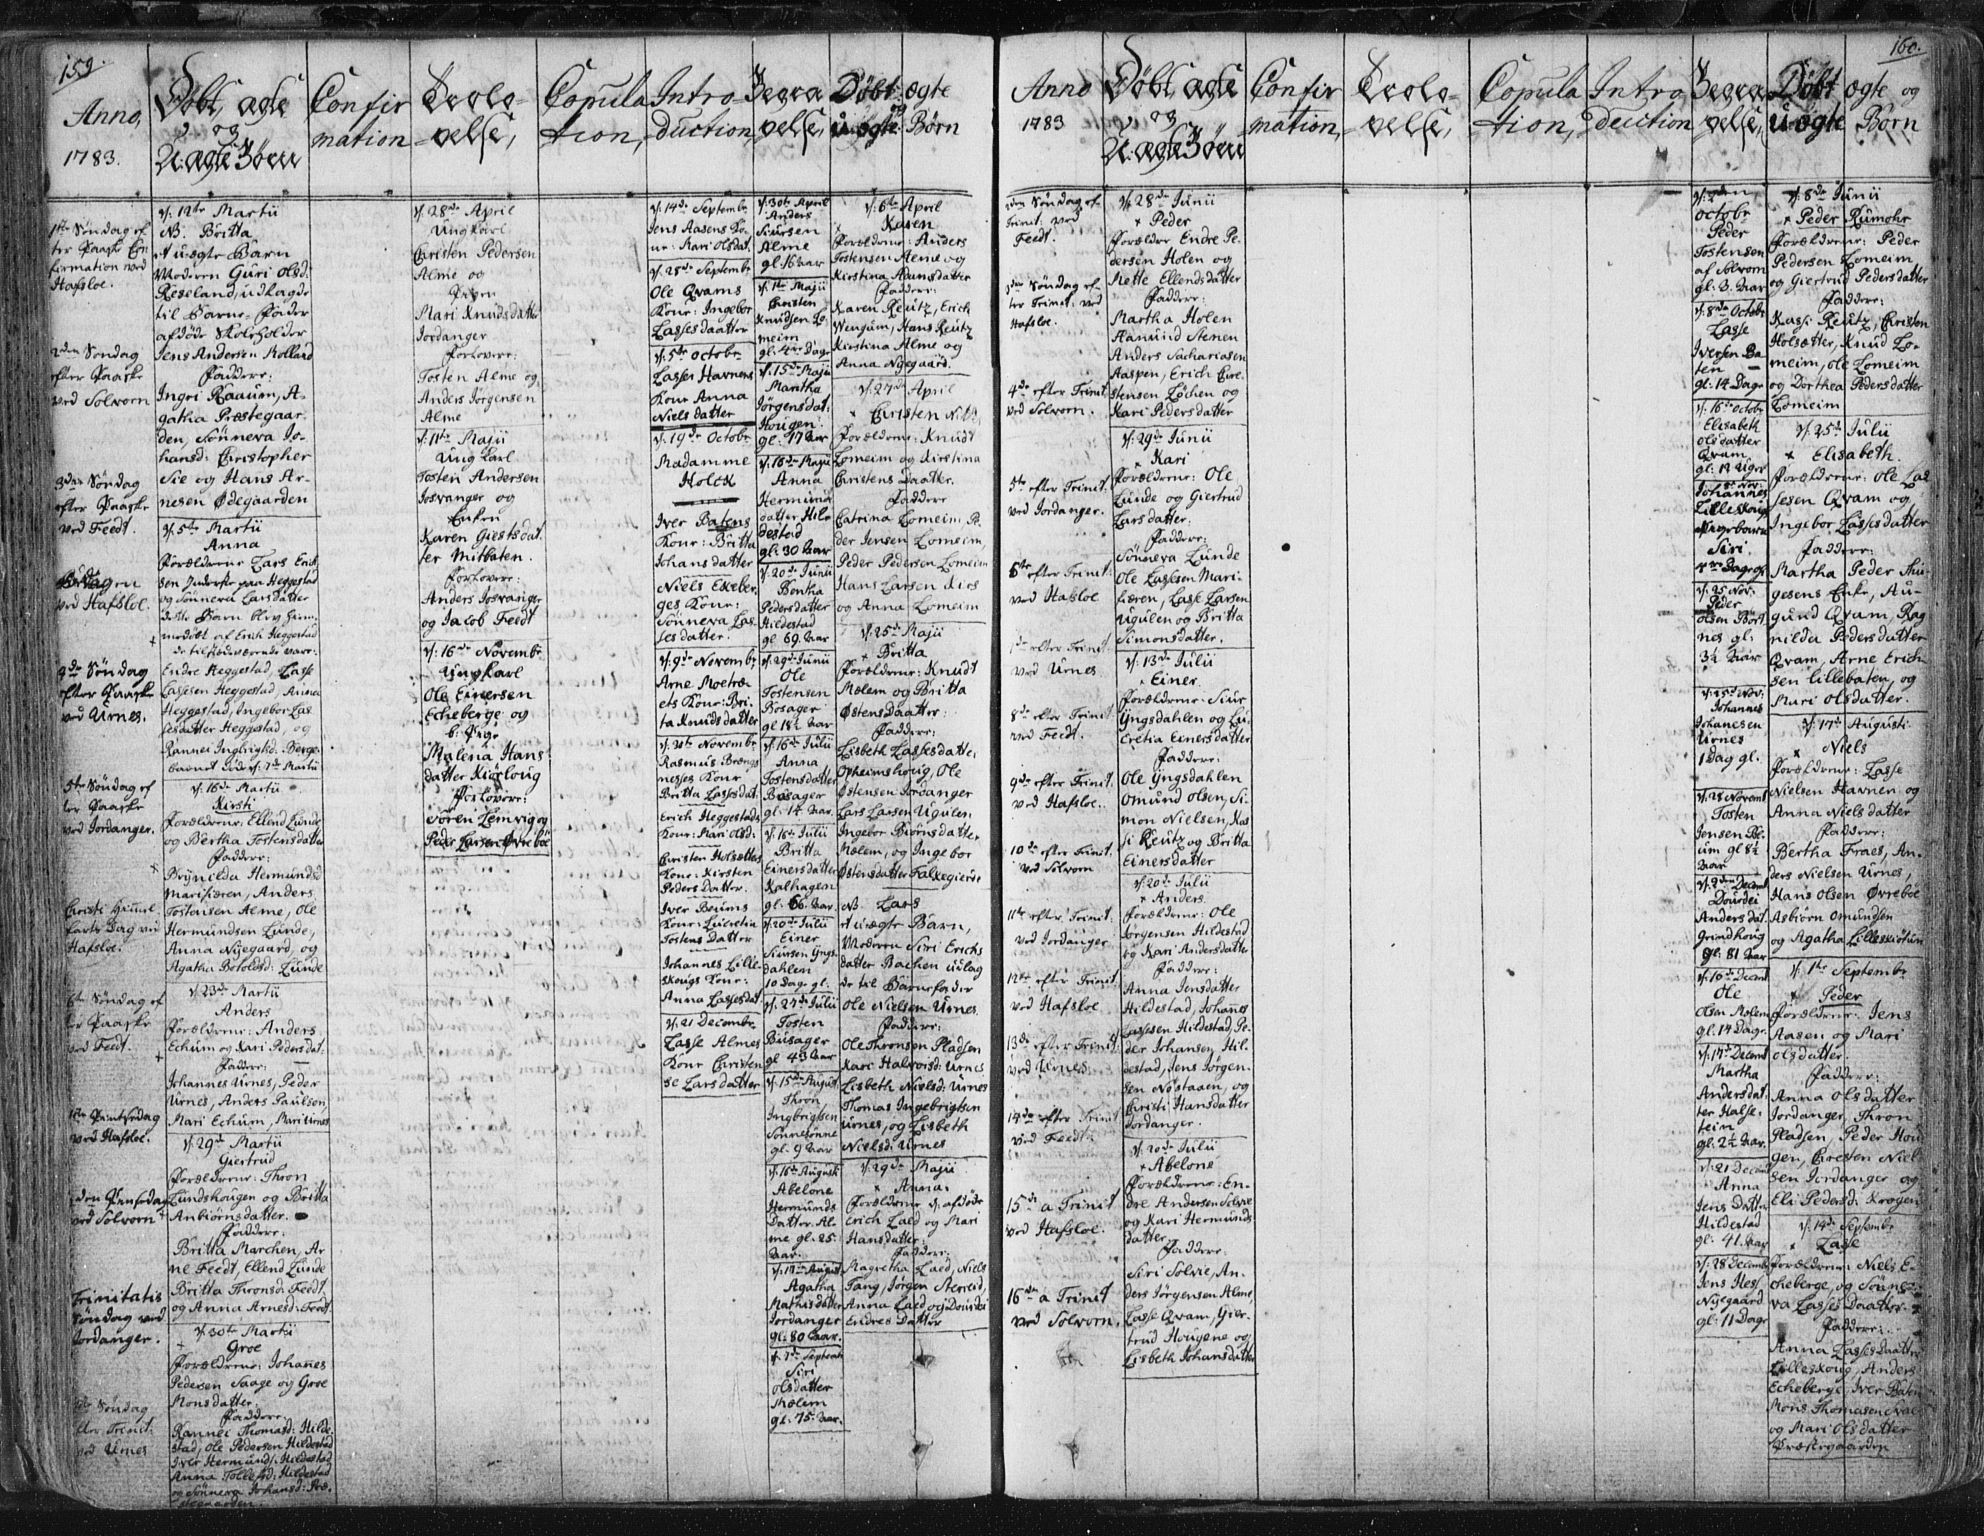 159.
Anno,
1783.
Døbt, ægte
og
U:ægte Børn
Confir
mation
Trolo-
velse,
Copula
tion,
Intro-
duction,
Begra
velse,
Døbt, ægte
og
u:ægte Børn
1ste Søndag ef
ter Paaske Con
firmation ved
Hafsloe.
2den Søndag
efter Paaske
ved Solvorn
3die Søndag
efter Paaske
ved Feedt.
ved Hafsloe.
4de Søndag
efter Paaske
ved Urnes.
5te Søndag ef
ter Paaske
ved Jordanger.
Christi Himmel
farts Dag ved
Hafsloe.
6te Søndag ef
ter Paaske
ved Feedt.
1ste Pintsedag
ved Hafsloe.
2den Pintsedag
ved Solvorn
Trinitatis
Søndag ved
Jordanger.
Søndag
efter Trinit.
ved Urnes
d: 12te Martii
NB. Britta
et uægte Barn
Moderen Guri Olsd:
Reseland, udlagde
til Barne-Fader
afdøde Skoleholder
Jens Andersen Molland
Faddere:
Ingri Raaum, A-
gatha Præstegaar-
den, Sønneva Jo-
hansd: Christopher
Sie og Hans Ar-
nesen Ødegaarden
d: 5te Martii
Anna
Forældrene Lars Erich
sen Inderste paa Heggestad
og Sønneva Larsdatter
dette Barn blev hjem-
medøbt af Erich Heggestad
de tilstædeværende varr:
Endre Heggestad, Lasse
Lassesen Heggestad, Anna
Heggestad, Ingebor Las
sesdatter Heggestad, og
d: 16de Martii
Kirsti
Forældrene: Ellend Lunde
og Bertha Tostensdatter
Faddere:
Brynilda Hermundsd
Marifiæren, Anders
Tostensen Alme, Ole
Hermundsen Lunde,
Anna Nyegaard, og
Agatha Botolsd: Lunde
d: 23de Martii
Anders
Forældrene: Anders
Echum og Kari Pedersdat:
Faddere:
Johannes Urnes, Peder
Urnes, Anders Paulsen,
Mari Echum, Mari Urnes
d: 29de Martii
Giertrud
Forældrene: Thron
Lundshougen og Britta
Anbiørnsdatter.
Faddere:
Britta Marchen, Ar
ne Feedt, Ellend Lunde
Britta Thronsd: Feedt,
og Anna Arnesd: Feedt.
d: 30te Martii
Groe
Forældrene: Johanes
Pedersen Saage og Groe
Monsdatter.
Faddere:
Rannei Thomasd: Hilde
stad, Ole Pedersen Hildestad
Iver Hermunds: Hildestad
Anna Tollefsd: Hildestad
og Sønneva Johansd: Præ
stegaarden.
d: 28de April
Ung Karl
Christen Pedersen
Alme og
Pigen
Mari Knudsdatter
Jordanger
Forlovere:
Tosten Alme og
Anders Jørgensen
Alme
d: 11te Maji
Ung Karl
Tosten Andersen
Josvanger og
Enken
Karen Giestsdat
ter Mitbøten.
Forlovere:
Anders Josvanger
og Jacob Feedt
d: 16de Novembr
Ung Karl
Ole Einersen
Echeberge og
b: Pige
Malena Hans
datter Kiørloug
Forlovere:
Søren Lemvig og
Peder Larsen Øvrebøe
d: 14de Septembr.
Jens Aasens Ko-
ne: Kari Olsdat.
d: 28de Septembr
Ole Qvams
Kone: Ingebor
Lassesdaatter
d: 5te Octobr
Lasse Havnens
Kone Anna
Nielsdatter
d: 19de Octobr.
Madamme
Holck
Iver Batens
Kone: Britta
Johansdatter
Niels Ekeber-
ges Kone:
Sønneva Las-
sesdatter.
d: 9de Novembr
Arne Moetræ-
ets Kone: Bri-
ta Knudsdatter
Novembr
Rasmus
nesses Kone
Britta Lassesdat:
Erich Heggestads
Kone: Mari Olsd:
Christen Holsætters
Kone: Kirsten
Peders Datter.
Iver Beums
Kone: Lucretia
Tostens Datter
Johannes Lille-
skougs Kone:
Anna Lassesdat:
d: 21 Decembr
Lasse Almes
Kone Christen
se Larsdatter
d: 30te April
Anders
Siursen
Alme
gl. 16 aar
d: 1ste Maji
Christen
Knudsen Lo
meim
d: 15de Maji
Martha
Jørgensdat:
Hougen
gl: 17 Aar
d: 18de Maji
Anna
Hermunds
datter Hil-
destad
gl: 30 Aar
d: 20de Junii
Bertha
Pedersdatter
Hildestad
gl 69. Aar
d: 29de Junii
Ole
Tostensen
Bosager
gl 18½ Aar
d: 16de Julii
Anna
Tostensdatter
Bosager
gl: 14 Aar.
d: 16de Julii
Britta
Einersdatter
Kalhagen
gl: 66. Aar.
d: 20de Julii
Einer
Siursen Yngs-
dahlen
10 Dage gl:
d: 27de Julii
Tosten
Busager
gl 43 Aar
d: 15de August
Thron
Ingbrigtsen
Sønnesønne
gl: 9 Aar
d: 16de August
Abelone
Hermunds
Datter Al-
me gl: 25.
Aar.
August
Agatha
Mathisdatter
Jordanger
gl: 80 Aar.
d: 7de Septembr
Siri
Olsdatter
Mælem
gl: 75. Aar.
d: 6te April
Karen
Forældrene: Anders
Tostensen Alme og
Kirstina Hansdatter
Faddere:
Karen Reutz, Erich
Wengum, Hans Reutz
Kirstina Alme og
Anna Nyegaard.
d: 27de April
Christen
Forældrene: Knudt
Lomeim og Kirstina
Christens Daatter.
Faddere
Catrina Lomeim Pe-
der Jensen Lomeim,
Peder Pedersen Lomeim
Hans Larsen
og Anna Lomeim
d: 25de Maji
Britta
Forældrene: Knudt
Mælem og Britta
Østens Daatter:
Faddere:
Lisbeth Lassesdatte,
Opheimshoug, Ole
Østensen Jordanger
Lars Larsen Ugulen
Ingebor Biørnsdatter
Mælem, og Ingebor
Østensdatter Falkegierde
NB. Lars
et uægte Barn,
Moderen Siri Erichs
datter Bachen udlag
de til Barnefader
Ole Nielsen Urnes.
Faddere:
Ole Thronsen Pladsen
Kari Halvorsd: Urnes
Lisbeth Nielsd: Urnes
Thomas Ingebrigtsen
Urnes, og Lisbeth
Nielsd: Urnes
d: 29de Maji
Anna.
Forældrene d: afdøde
Erich Laed og Mari
Hansdatter:
Faddere:
Magretha Laed, Niels
Tang, Jørgen
Anna Laed og Dourdei
Endres Datter
160.
Anno
1783
Døbt, ægte
og
U:ægte Børn
Confir
mation,
Trolo-
velse,
Copula
tion,
Intro
duction
Begra
velse,
Døbt ægte og
u:ægte Børn
2den Søndag ef
Trinit: ved
Feedt.
Søndag ef
ter Trinit: ved
Hafsloe.
4de efter Trinit
ved Solvorn.
5te efter Trinit:
ved Jordanger.
6te efter Trinit:
ved Hafsloe
7de efter Trinit.
ved Urnes
8de efter Trinit
ved Feedt.
9de efter Trinit.
ved Hafsloe.
10de efter Trinit.
ved Solvorn
11te efter Trinit:
ved Jordanger
12te efter Trinit
ved Hafsloe
13de efter Trinit:
ved Urnes
14de efter Trinit
ved Feedt.
15de a Trinit
ved Hafsloe.
16de a Trinit
ved Solvorn.
d: 28de Junii
Peder
Forældre Endre Pe-
dersen Holen og
Mette Ellendsdatter
Faddere:
Martha Holen
Aamund Stenen
Anders Sachariasen
Aaspen, Erich Chri-
stensen Løchen og
Kari Pedersdatter
d: 29de Junii
Kari
Forældrene: Ole
Lunde og Giertrud
Larsdatter.
Faddere:
Sønneva Lunde
Ole Lassesen Mari-
fiæren, Lasse Larsen
Ugulen og Britta
Simonsdatter.
d: 13de Julii
Einer.
Forældrene: Siur
Yngsdahlen og Lu-
cretia Einersdatter
Faddere:
Ole Yngsdahlen
Omund Olsen, Si-
mon Nielsen, Kas
si Reutz og Britta
Einersdatter
d: 20de Julii
Anders.
Forældrene: Ole
Jørgensen Hildestad
og Kari Andersdatter
Faddere:
Anna Jensdatter
Hildestad, Johanes
Lassesen Hildestad, Pe-
der Johansen Hil-
destad, Jens Jørgen-
sen Nostaaen, og
Christi Hansdatter
Jordanger.
d: 20de Julii
Abelone
Forældrene: En-
dre Andersen Solvie
og Kari Hermunds
datter.
Faddere.
Siri Solvie, An-
ders Jørgensen Alme,
Lasse Qvam, Gier-
trud Hougene og
Lisbeth Johansdatter
Octobr
Peder
Tostensen
af Solvorn
gl. 3. Aar
d: 8de Octobr
Lasse
Iversen Ba-
ten
gl. 14 Dage
d: 16de Octobr
Elisabeth
Olsdatter
Qvam
gl: 12 Uger
Johannes
Lilleskougs
Siri.
d: 25 Nov:
Peder
Olsen Bort
nes gl:
3½ Aar
d: 25de Nov:
Johannes
Johanesen
Urnes
1 Dag gl.
d: 28 Novembr
Tosten
Jensen Be-
um gl 8½
Aar
d: 2den Decembr
Dourdei
Anders dat.
Grindhoug
gl: 81 Aar
d: 10de Decembr
Ole
Olsen Mælem
gl. 14 Dage.
d: 14de Decembr
Martha
Andersdat-
ter Halse-
tein
gl: 2½ Aar.
d: 21 Decembr
Anna
Jens Datter
Hildestad
gl: 41. Aar
d: 28 Decembr
Jens
Nyegaard
gl: 11 Dage
d: 8de Junii
Peder Rumohr
Forældrene: Peder
Pedersen Lomeim
og Giertrud Pedersdatter
Faddere:
Kassi Reutz, Christen
Holsætter, Knud Lo-
meim, Ole Lomeim
og Dorthea Pedersdatter
Lomeim
d: 25de Julii
Elisabeth.
Forældrene: Ole Las
sesen Qvam og
Ingebor Lassesdatter
Faddere:
Martha Peder Thu-
gesens Enke, Au-
gund Qvam, Rag
nilda Pedersdatter
Qvam, Arne Erich-
sen Lillebaten, og
Mari Olsdatter.
d: 17de Augusti
Niels
Forældrene: Lasse
Nielsen Havnen og
Anna Nielsdatter
Faddere:
Bertha Fraes, An-
ders Nielsen Urnes,
Hans Olsen Øvrebøe
Asbiørn Omundsen
og Agatha Lillesvotun
d: 1ste Septembr
Peder
Forældrene: Jens
Aasen og Mari
Olsdatter.
Faddere:
Anna Olsdatter
Jordanger, Thron
Pladsen, Peder Hou
gen, Christen Niel
sen Jordanger og
Eli Pedersd: Krogen
d: 14de Septembr
Lasse
Forældrene: Niels E-
cheberge, og Sønne-
va Lasses Daatter.
Faddere:
Anna Lasses Daatter
Lilleskoug, Anders
Echeberge, Iver Baten
Mons Thomasen
og Mari Olsdatter
Præstegaarden